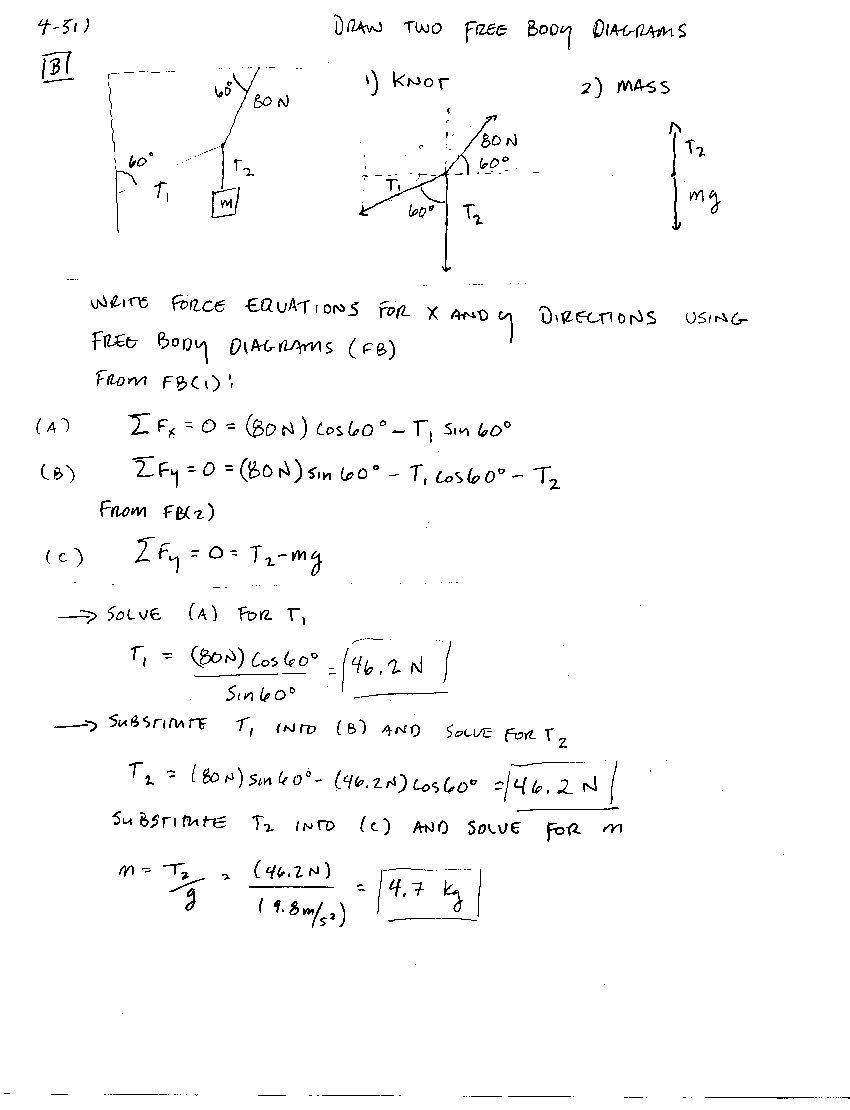 4-51)
DRAW TWO FREE BODY DIAGRAMS
[B]
60°
80N
60°
T₁
T₂
m
1) KNOT
80N
60°
T₁
60°
T₂
2) MASS
T₂
mg
WRITE FORCE EQUATIONS FOR X AND y DIRECTIONS USING
FREE BODY DIAGRAMS (FB)
FROM FB(1):
(A) ΣFₓ = 0 = (80N) cos60° - T₁ sin 60°
(B) ΣFy = 0 = (80N) sin 60° - T₁ cos60° - T₂
FROM FB(2)
(C) ΣFy = 0 = T₂ - mg
→ SOLVE (A) FOR T₁
T₁ = (80N) cos60° / sin60° = 46.2 N
→ SUBSTITUTE T₁ INTO (B) AND SOLVE FOR T₂
T₂ = (80N) sin 60° - (46.2N) cos60° = 46.2 N
SUBSTITUTE T₂ INTO (C) AND SOLVE FOR m
m = T₂/g = (46.2N) / (9.8m/s²) = 4.7 kg